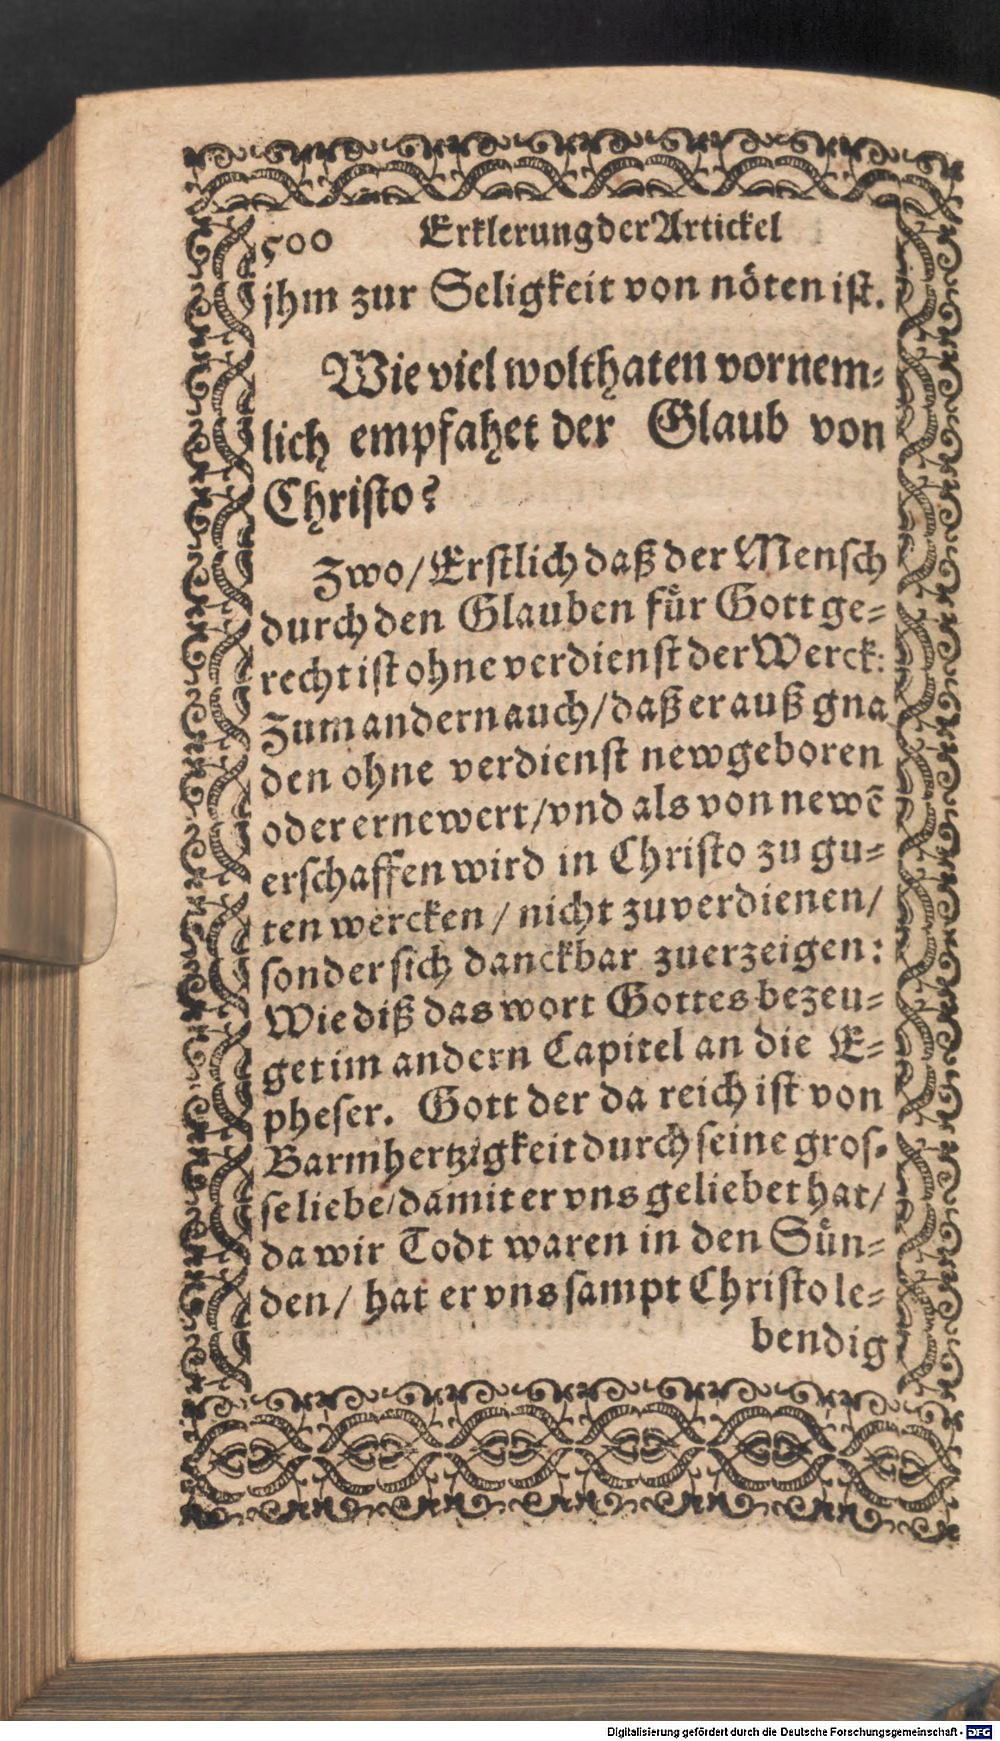 500 Erklerung der Artickel
jhm zur Seligkeit von nöten ist.
Wie viel wolthaten vornem-
lich empfahet der Glaub von
Christo?
Zwo/ Erstlich daß der Mensch
durch den Glauben für Gott ge-
recht ist ohne verdienst der Werck:
Zum andern auch/ daß er auß gna
den ohne verdienst newgeboren
oder ernewert/ vnd als von newē
erschaffen wird in Christo zu gu-
ten wercken / nicht zuverdienen/
sonder sich danckbar zuerzeigen:
Wie diß das wort Gottes bezeu-
get im andern Capitel an die E-
pheser. Gott der da reich ist von
Barmhertzigkeit durch seine gros-
se liebe/ damit er vns geliebet hat/
da wir Todt waren in den Sün-
den/ hat er vns sampt Christo le-
bendig
Digitalisierung gefördert durch die Deutsche Forschungsgemeinschaft - DFG